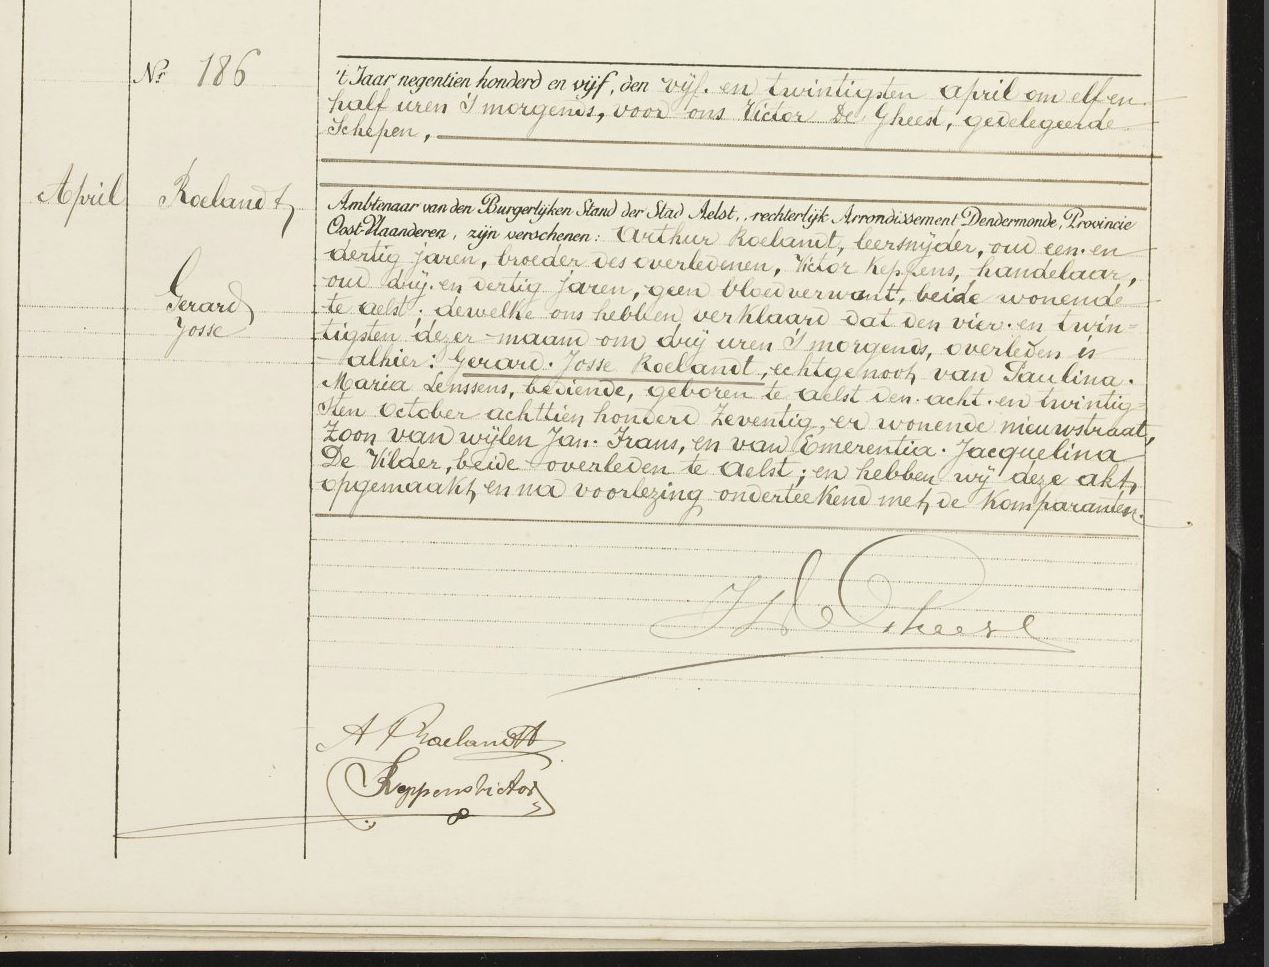 Nr 186
't Jaar negentien honderd en vijf, den vijf. en twintigsten april om elf en
half uren 's morgends, voor ons Victor De Gheest, gedelegeerde
Schepen,
April
Roelandt
Gerard
Josse
Ambtenaar van den Burgerlijken Stand der Stad Aelst, rechterlijk Arrondissement Dendermonde, Provincie
Oost-Vlaanderen, zijn verschenen: Arthur Roelandt, leersnijder, oud een. en
dertig jaren, broeder des overledenen, Victor Keppens, handelaar,
oud drij. en dertig jaren, geen bloedverwant, beide wonende
te aelst; dewelke ons hebben verklaard dat den vier. en twin=
tigsten dezer maand om drij uren 's morgends, overleden is
alhier: Gerard. Josse Roelandt, echtgenoot van Paulina.
Maria Lenssens, bediende, geboren te aelst den. acht. en twintig=
sten october achttien honderd zeventig, er wonende nieuwstraat,
Zoon van wijlen Jan. Frans, en van Emerentia. Jacquelina
De Vilder, beide overleden te aelst; en hebben wij deze akt,
opgemaakt en na voorlezing onderteekend met de Komparanten.
A Roelandt
Keppens Victor